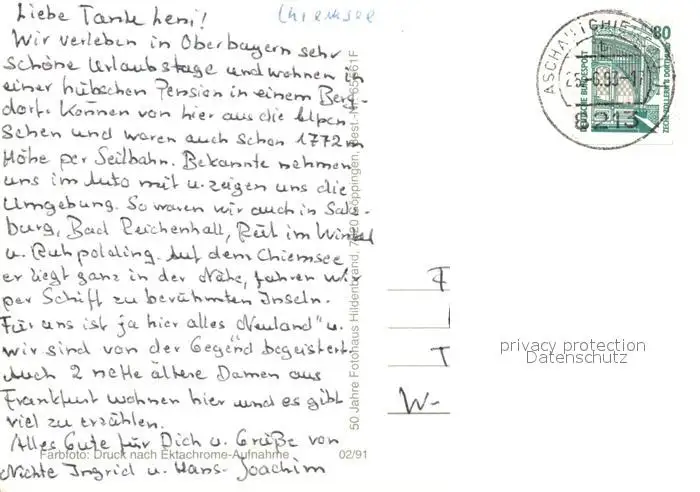 Chiemsee
Liebe Tante Leni!
Wir verleben in Oberbayern sehr
schöne Urlaubstage und wohnen in
einer hübschen Pension in einem Berg-
dorf. Können von hier aus die Alpen
sehen und waren auch schon 1772 m
Höhe per Seilbahn. Bekannte nehmen
uns im Auto mit u. zeigen uns die
Umgebung. So waren wir auch in Salz-
burg, Bad Reichenhall, Reit im Winkel
u. Ruhpolding. Auf dem Chiemsee
er liegt ganz in der Nähe, fahren wir
per Schiff zu berühmten Inseln.
Für uns ist ja hier alles "Neuland" u.
wir sind von der Gegend begeistert.
Auch 2 nette ältere Damen aus
Frankfurt wohnen hier und es gibt
viel zu erzählen.
Alles Gute für Dich u. Grüße von
Nichte Ingrid u. Hans-Joachim
Farbfoto: Druck nach Ektachrome-Aufnahme 02/91
50 Jahre Fotohaus Hildenbrand, Göppingen, Best.-Nr.
ASCHAU I CHIEM
8213
80
DEUTSCHE BUNDESPOST
ZECHE ZOLLERN II DORTMUND
T
W-
privacy protection
Datenschutz